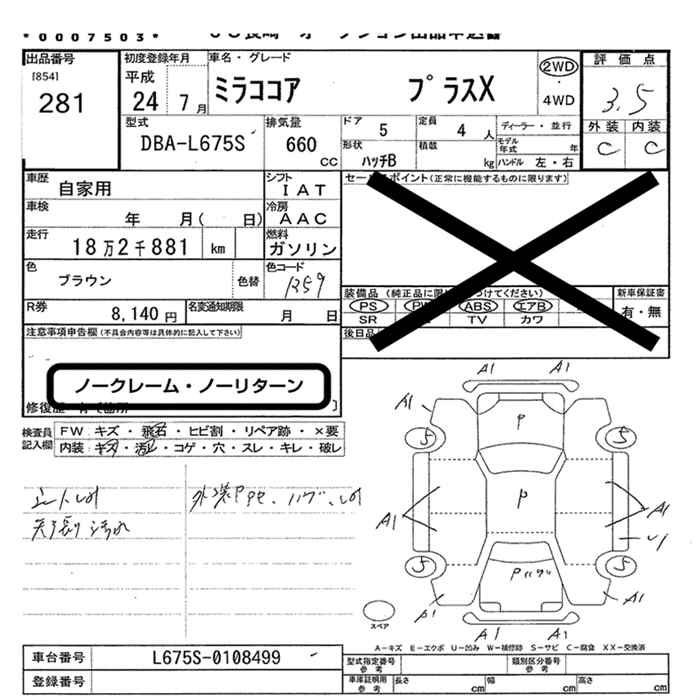 *0007503*
出品番号
[854]
281
初度登録年月
平成
24 7月
車名・グレード
ミラココア プラスX
2WD
・
4WD
評価点
3.5
外装 内装
C C
型式
DBA-L675S
排気量
660
cc
ドア
5
定員
4 人
ディーラー・並行
形状
ハッチB
積載
kg
モデル年式
年
ハンドル 左・右
車歴
自家用
シフト
IAT
車検
年 月( 日)
冷房
AAC
走行
18万2千881 km
燃料
ガソリン
色
ブラウン
色替
色コード
R59
R券
8,140円
名変通知期限
月 日
ポイント(正常に機能するものに限ります)
装備品
PS
ABS
エアB
SR
TV
カワ
新車保証書
有・無
注意事項申告欄(不具合内容等は具体的に記入して下さい)
ノークレーム・ノーリターン
検査員記入欄
FW キズ・飛石・ヒビ割・リペア跡・×要
内装・キズ・汚れ・コゲ・穴・スレ・キレ・破レ
天張 汚れ
A1 A1
A1
P
5 5
P
A1
A1
5 5
A1
A1 A1
スペア
A-キズ E-エクボ U-凹み W-補修跡 S-サビ C-腐食 XX-交換済
車台番号
L675S-0108499
登録番号
型式指定番号
参考
類別区分番号
参考
車庫証明用
参考
長さ
cm
幅
cm
高さ
cm